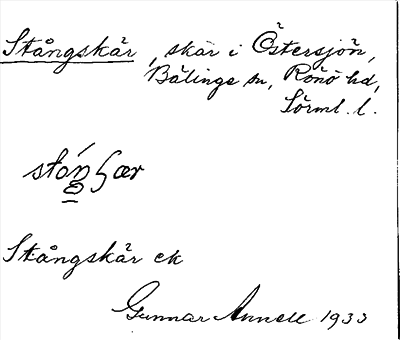 Stångskär, skär i Östersjön,
Bälinge sn, Rönö hd,
Sörml. l.
Stångskär ek
Gunnar Annell 1933